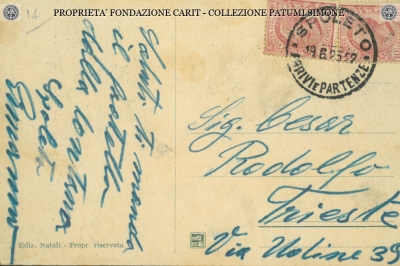 PROPRIETA' FONDAZIONE CARIT - COLLEZIONE PATUMI SIMONE
SPOLETO
19.6.25 22
ARRIVI E PARTENZE
Saluti Ti manda
il fratello
dalla lontana
Spoleto
Sig. Cesar
Rodolfo
Trieste
Via Udine 39
Ediz. Natali - Propr. riservata